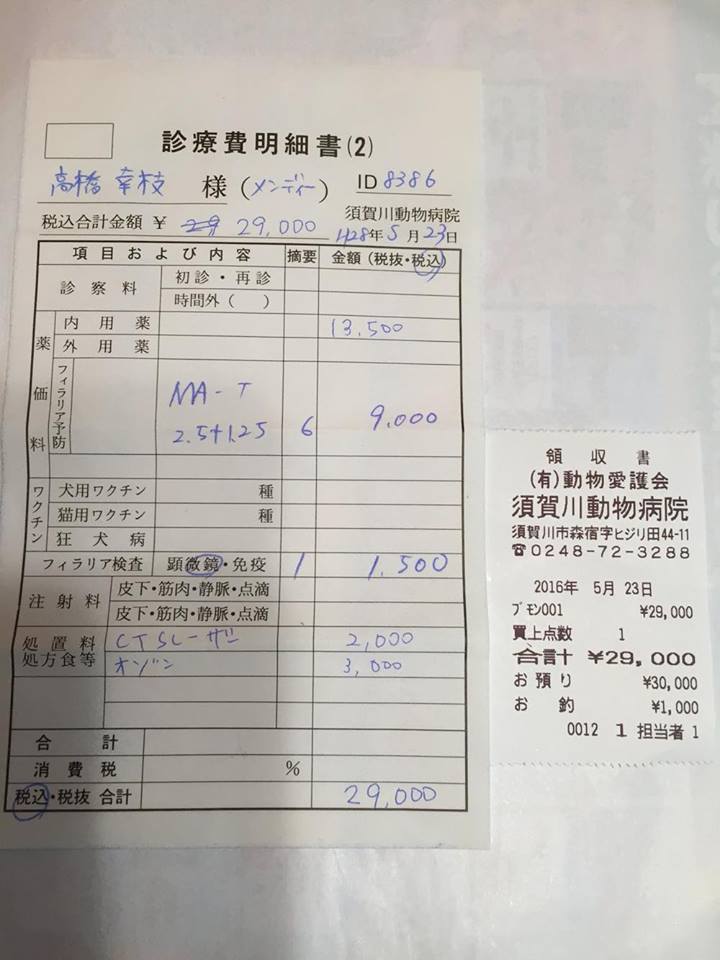 診療費明細書(2)
高橋 幸枝 様 (メンディー) ID 8386
税込合計金額 ¥ 29,000 須賀川動物病院
H28年5月23日
項目および内容 摘要 金額(税抜・税込)
診察料 初診・再診
時間外( )
薬価料 内用薬 13,500
外用薬
フィラリア予防 MA-T 2.5+1.25 6 9,000
ワクチン 犬用ワクチン 種
猫用ワクチン 種
狂犬病
フィラリア検査 顕微鏡・免疫 1 1,500
注射料 皮下・筋肉・静脈・点滴
皮下・筋肉・静脈・点滴
処置料 CTSレーザー 2,000
処方食等 オゾン 3,000
合計
消費税 %
税込・税抜 合計 29,000
領収書
(有)動物愛護会
須賀川動物病院
須賀川市森宿字ヒジリ田44-11
☎0248-72-3288
2016年 5月 23日
ブモン001 ¥29,000
買上点数 1
合計 ¥29,000
お預り ¥30,000
お釣 ¥1,000
0012 1 担当者 1